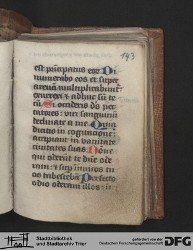 143
est principatus eor Di
numerabo eos et super
arenā multiplicabunt
exurrexi & adhuc sū te
cū Si occideris ds pec
catores viri sanguinū
declinate a me Quia
dicitis in cogitatione
accipiant in vanitate
civitates suas Nonne
qui oderūt te dn̄e ode
ram & sup inimicos tu
os tabescebā Perfecto
odio oderam illos
Stadtbibliothek
und Stadtarchiv Trier
gefördert von der
Deutschen Forschungsgemeinschaft
DFG